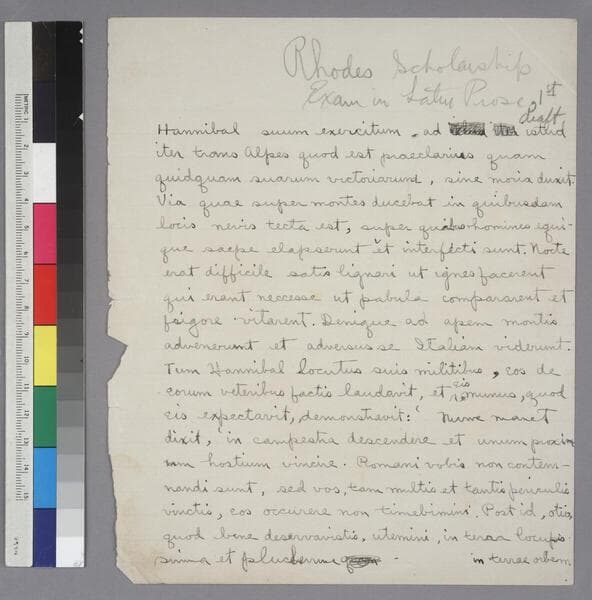 Rhodes Scholarship
Exam in Latin Prose. 1st
draft
Hannibal suum exercitum ad istud
iter trans Alpes quod est praeclarius quam
quidquam suarum victoriarum, sine mora duxit.
Via quae super montes ducebat in quibusdam
locis nevis tecta est, super quibus homines equi-
que saepe elapserunt et interfecti sunt. Nocte
erat difficile satis lignari ut ignes facerent
qui erant neccesse ut pabula compararent et
frigore vitarent. Denique ad apem montis
advenerunt et adversus se Italiam viderunt.
Tum Hannibal locutus suis militibus, eos de
eorum veteribus factis laudavit, et eis munus, quod
eis expectavit, demonstravit: 'Nunc manet
dixit, 'in campestra descendere et unum proxim
um hostium vincire. Romani vobis non contem-
nandi sunt, sed vos, tam multis et tantis periculis
vinctis, eos occurere non timebimini. Post id, otio,
quod bene deservavistis, utemini, in terra locupis-
sima et in terrae orbem.